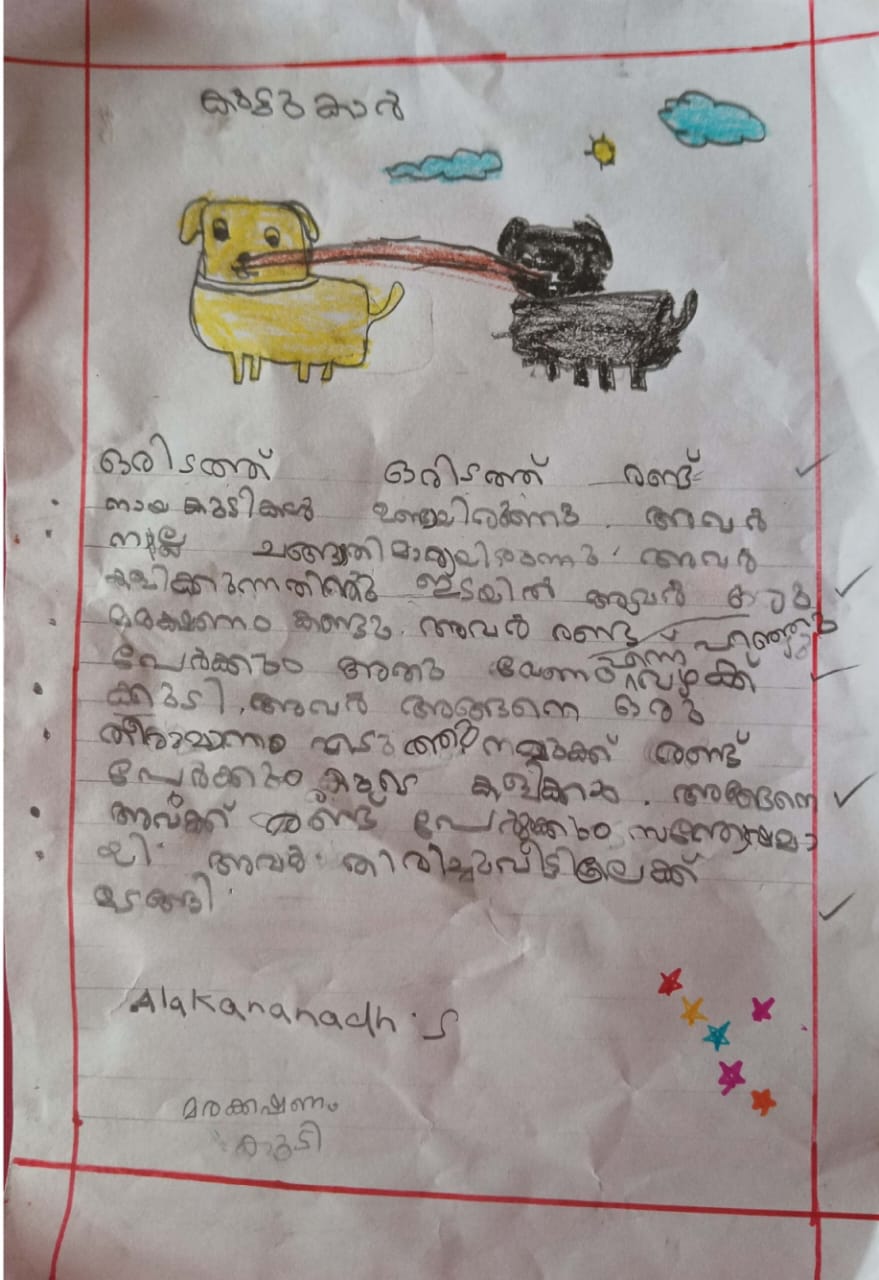 കുട്ടുകാർ
ഒരിടത്ത് ഒരിടത്ത് രണ്ട്
നായ കുട്ടികൾ ഉണ്ടായിരുന്നു. അവർ
നല്ല ചങ്ങാതിമാരായിരുന്നു. അവർ
കളിക്കുന്നതിന്റെ ഇടയിൽ അവർ ഒരു
മരക്ഷണം കണ്ടു. അവർ രണ്ടു
പേർക്കും അതു വേണം എന്ന് പറഞ്ഞു വഴക്ക്
കുടി. അവർ അങ്ങനെ ഒരു
തീരുമാനം എടുത്തു നമുക്ക് രണ്ട്
പേർക്കും കളിക്കാം. അങ്ങനെ
അവർക്ക് രണ്ട് പേർക്കും സന്തോഷമാ
യി. അവർ തിരിച്ചുവീട്ടിലേക്ക്
മടങ്ങി.
Alakananadh. S
മരക്കഷണം
കുടി